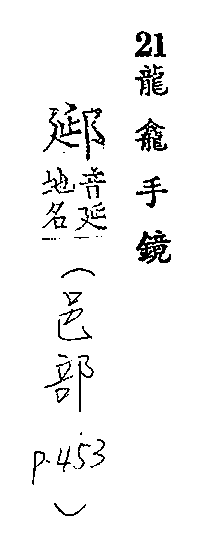 21龍龕手鏡
郔音延地名(邑部p.453)